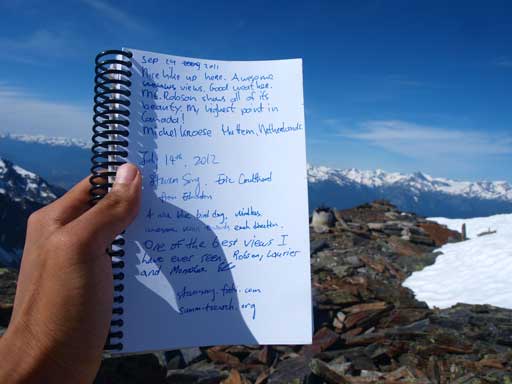 Sep 14 2011
Nice hike up here. Awesome
views. Good weather.
Mt. Robson shows all of its
beauty. My highest point in
Canada!
Michel Kroese Hattem, Netherlands
July 14th, 2012
Steven Song, Eric Coulthard
Ben
A blue bird day, windless,
awesome views each direction.
One of the best views I
have ever seen. Robson, Laurier
and Monashee
stevensong.
summitsearch.org